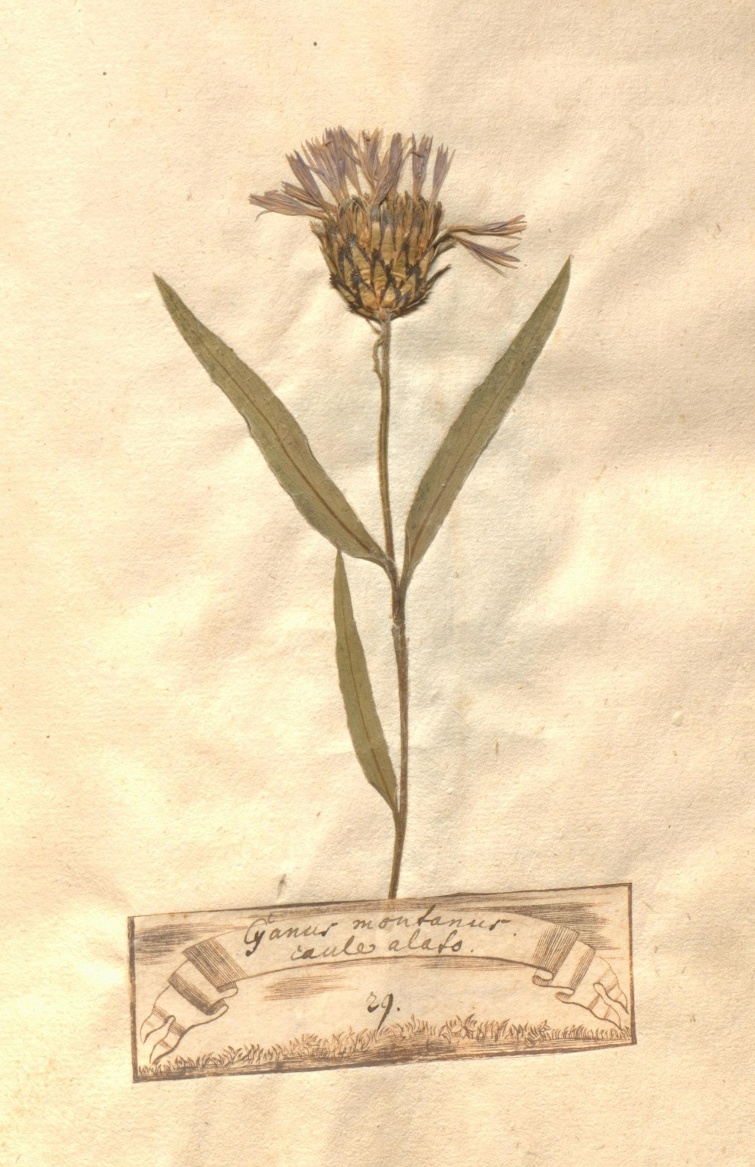 Cyanus montanus.
caule alato.
29.